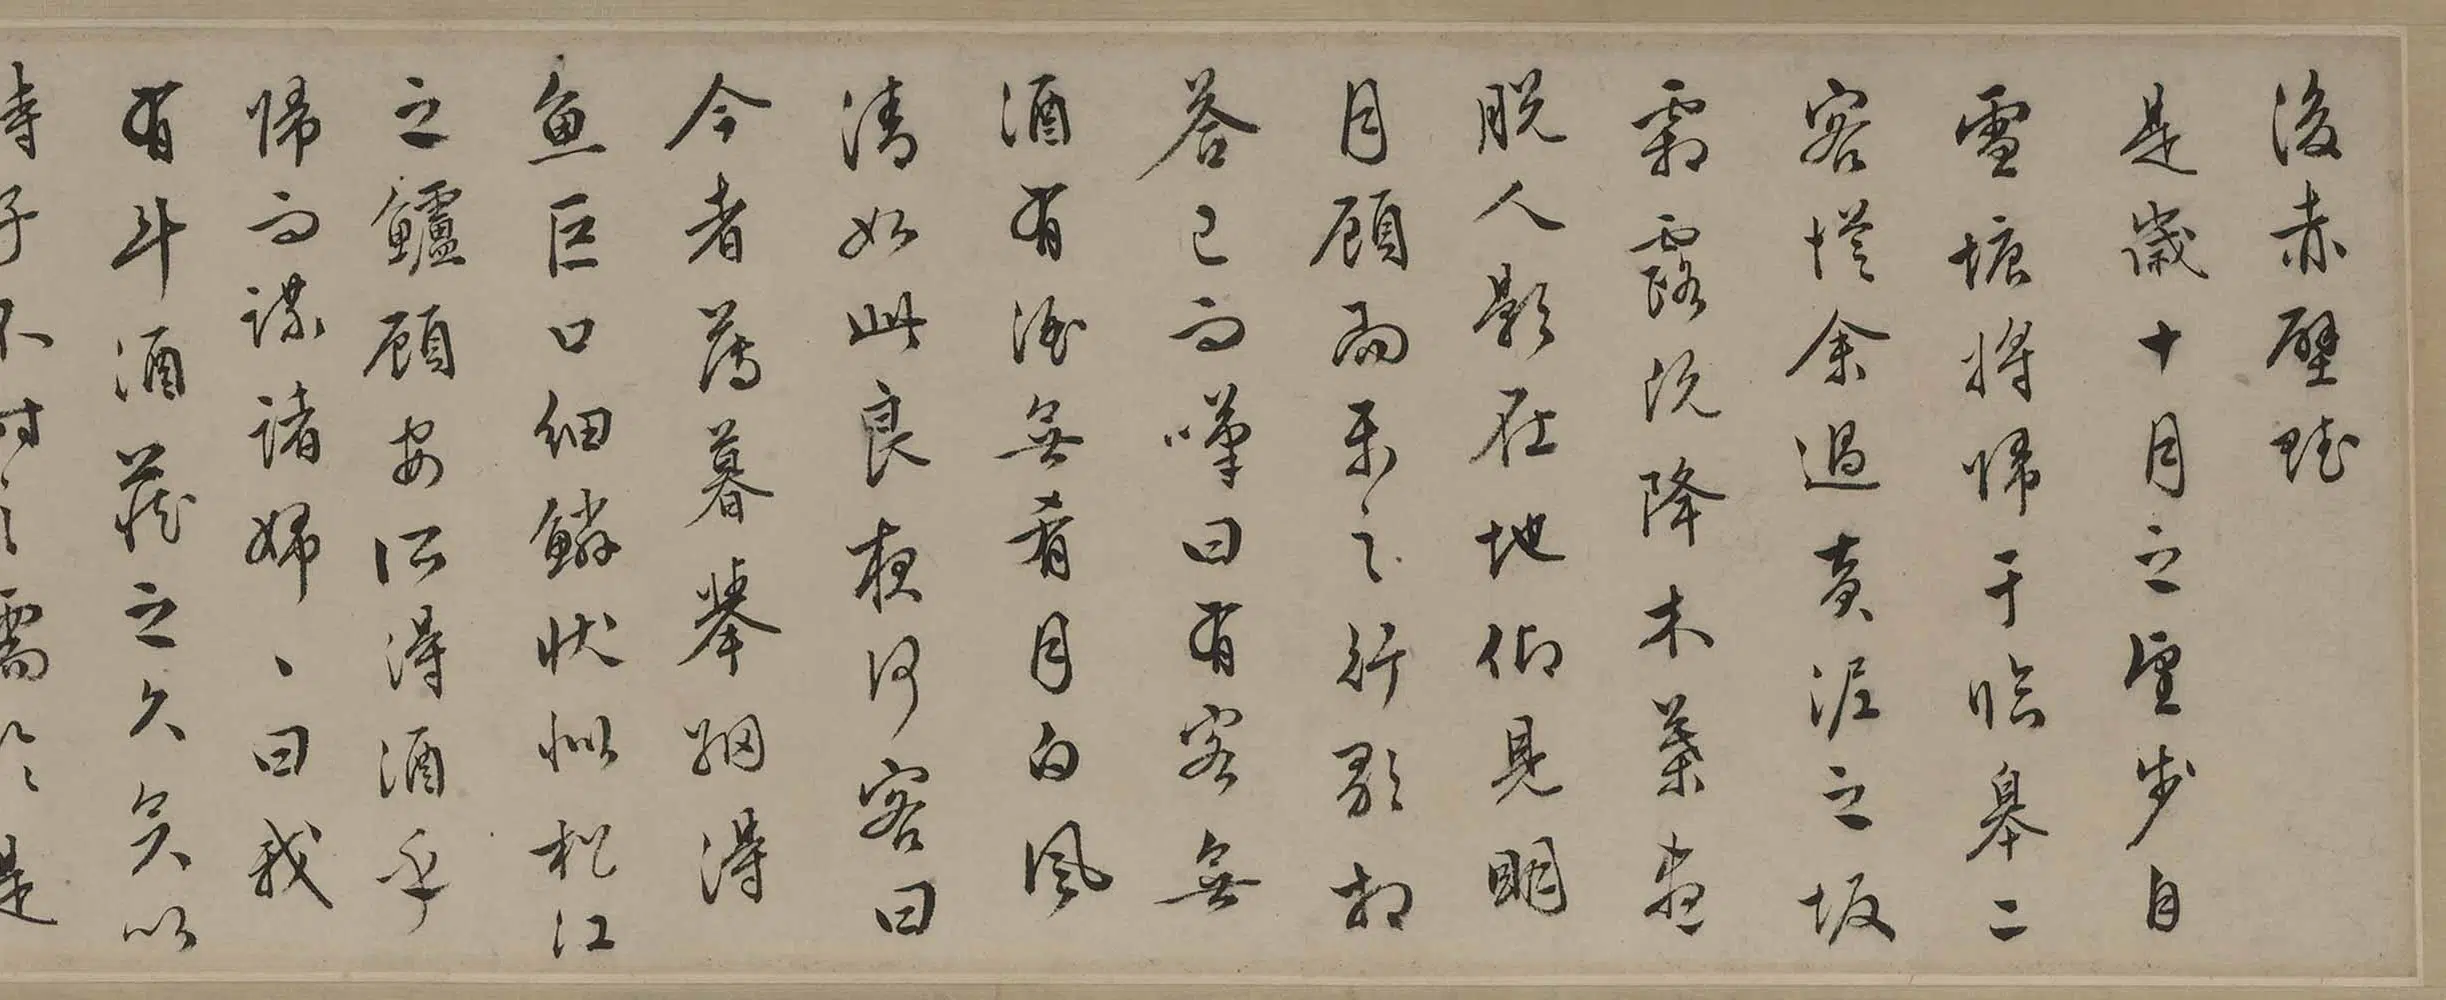 後赤壁賦
是歲十月之望步自
雪塘將歸于臨皋二
客從余過黃泥之坂
霜露既降木葉盡
脫人影在地仰見明
月顧而樂之行歌相
答已而嘆曰有客無
酒有酒無肴月白風
清如此良夜何客曰
今者薄暮舉網得
魚巨口細鱗狀似松江
之鱸顧安所得酒乎
歸而謀諸婦、曰我
有斗酒藏之久矣以
待子不時之需於是